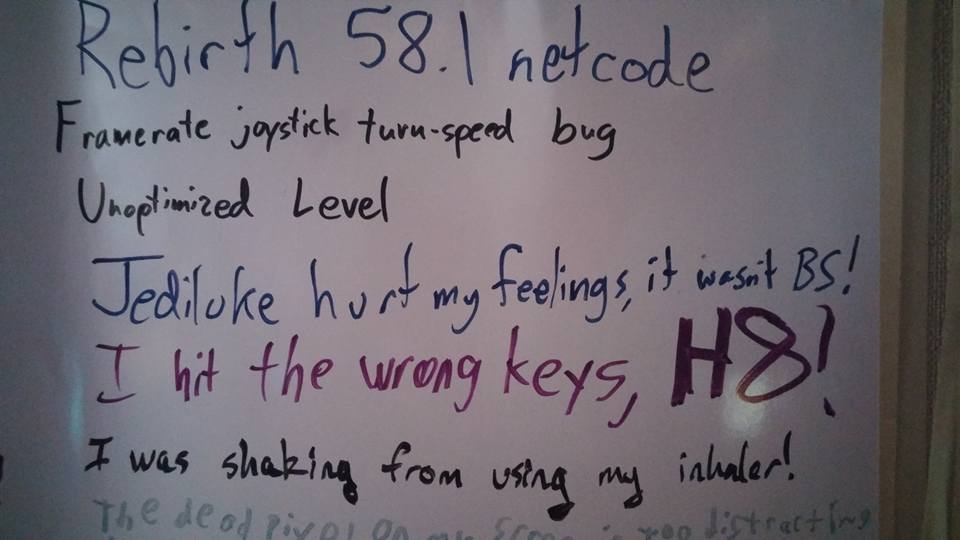 Rebirth 58.1 netcode
Framerate joystick turn-speed bug
Unoptimized Level
Jediluke hurt my feelings, it wasn't BS!
I hit the wrong keys, H8!
I was shaking from using my inhaler!
The dead pixel on my screen is too distracting